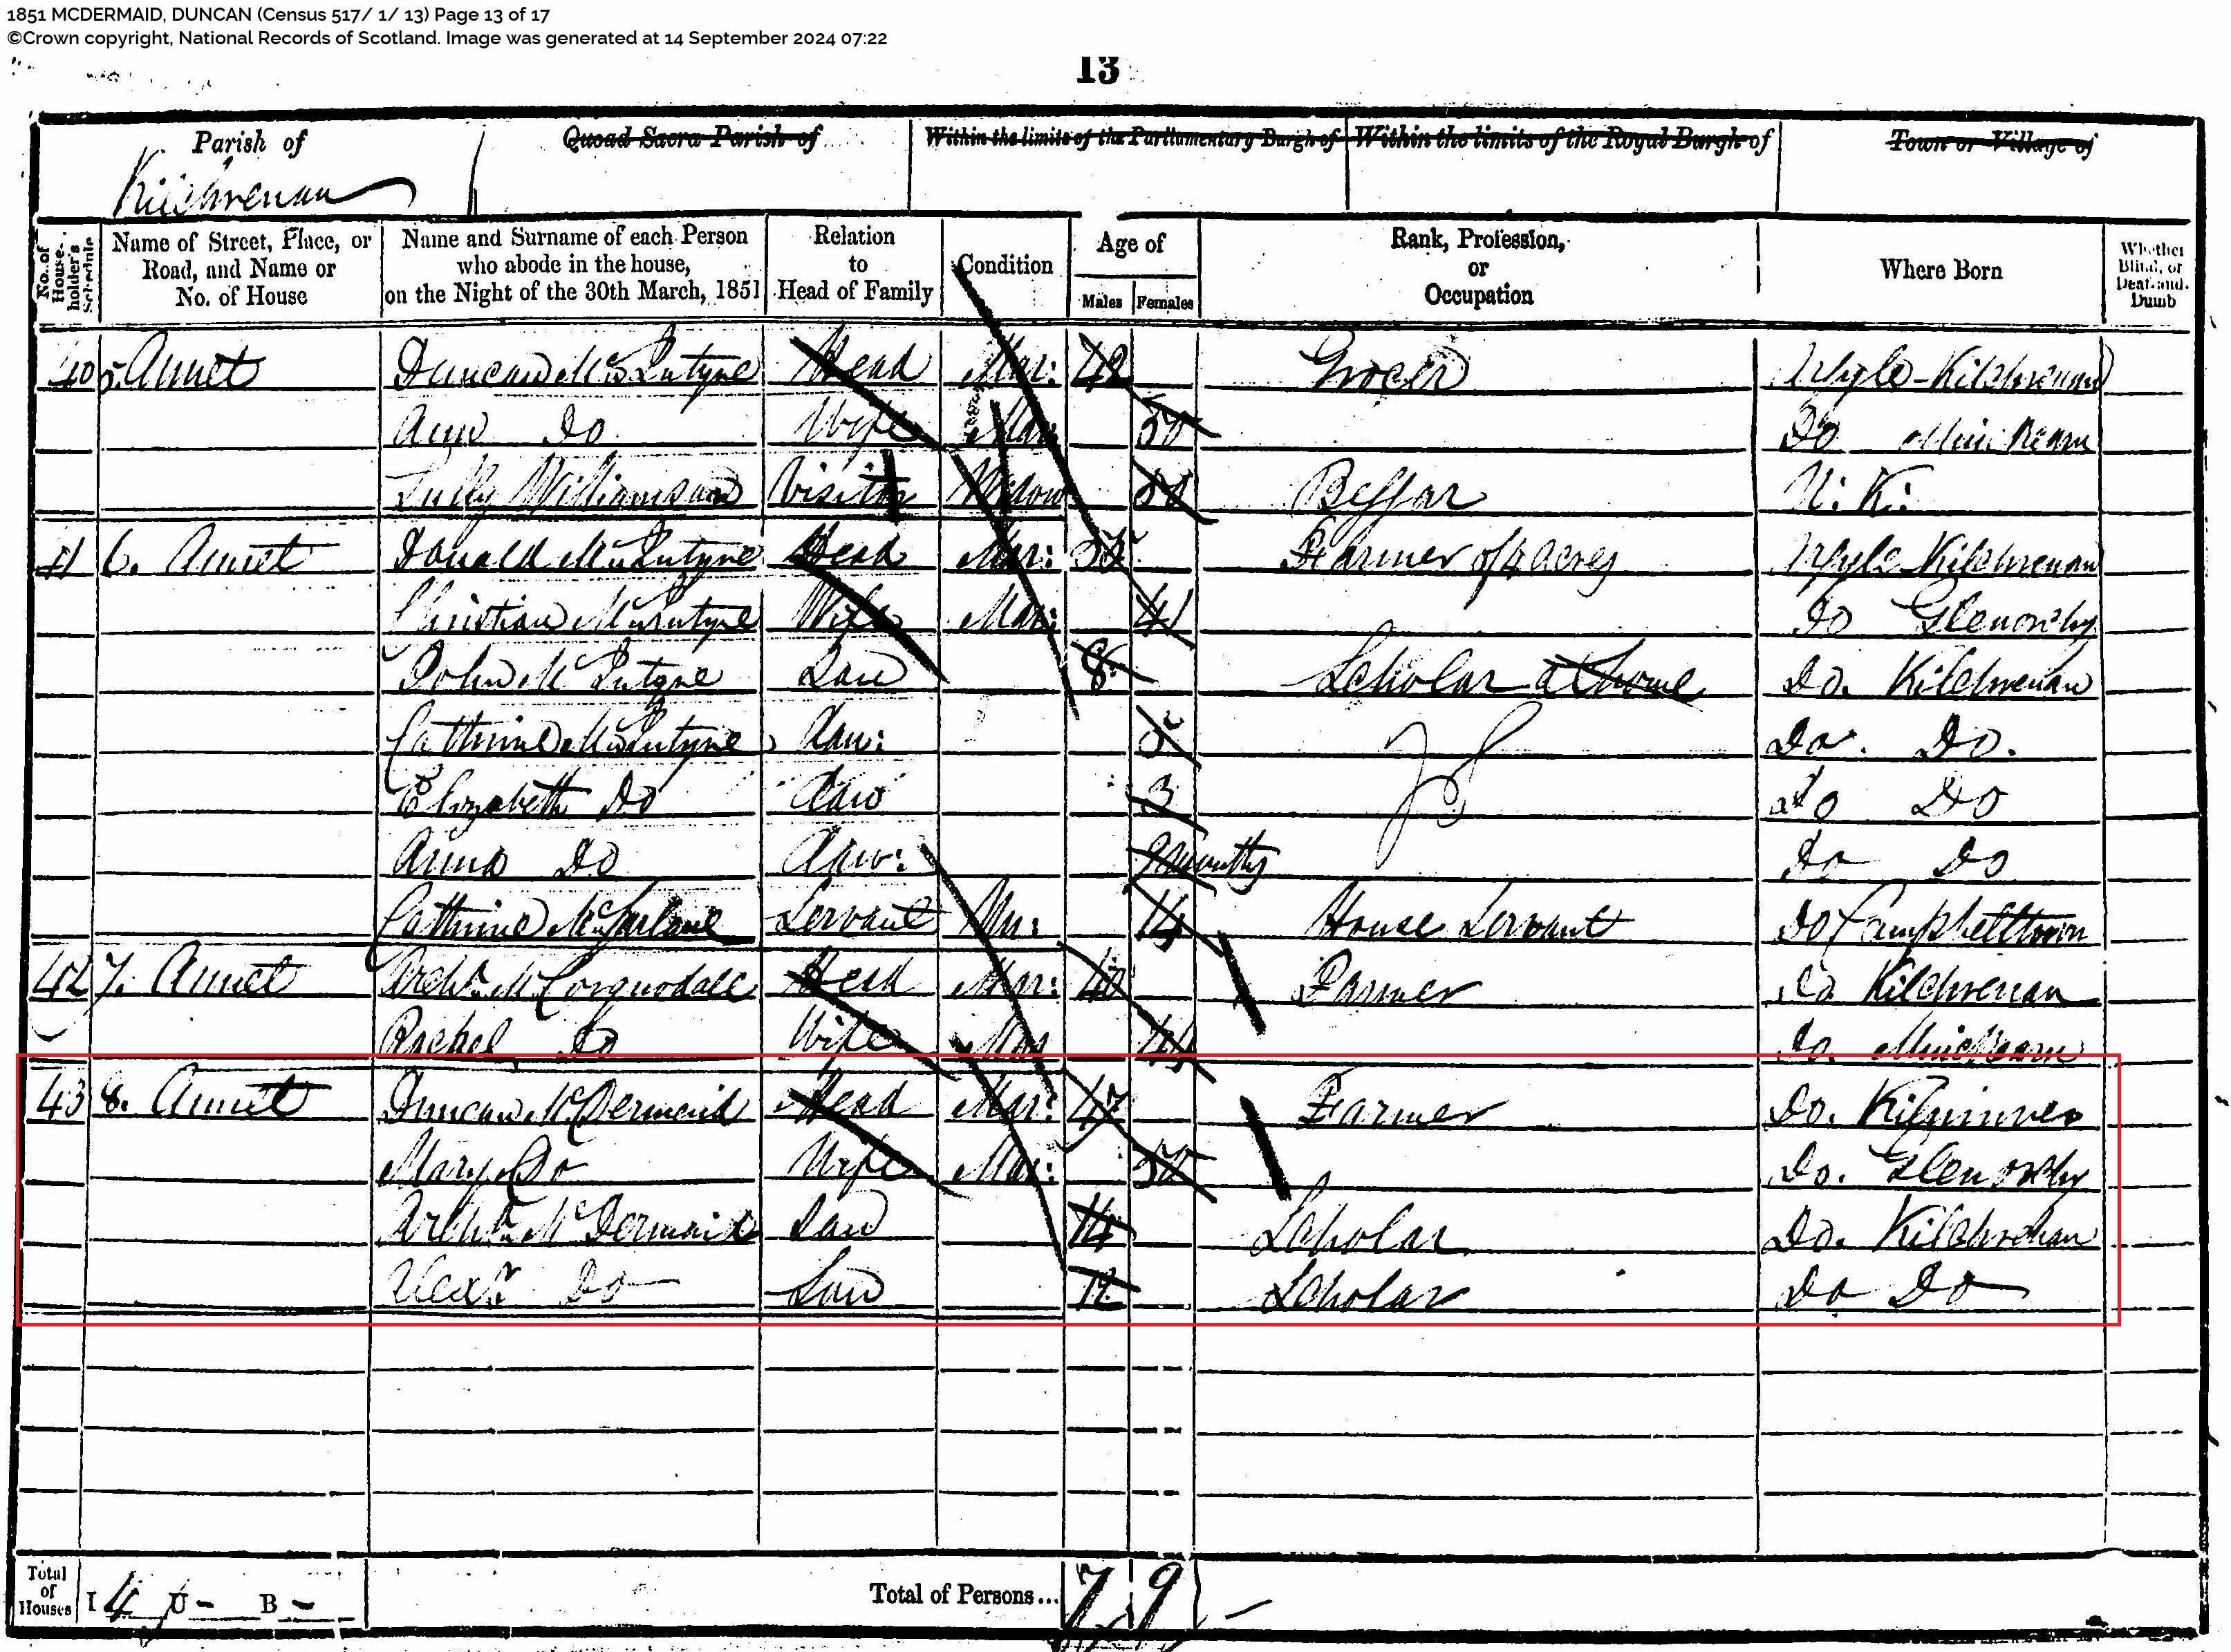 1851 MCDERMAID, DUNCAN (Census 517/ 1/ 13) Page 13 of 17
©Crown copyright, National Records of Scotland. Image was generated at 14 September 2024 07:22
13
Parish of Quoad Sacra Parish of Within the limits of the Parliamentary Burgh of Within the limits of the Royal Burgh of Town or Village of
Kilchrenan
No. of House-holder's Schedule
Name of Street, Place, or Road, and Name or No. of House
Name and Surname of each Person who abode in the house, on the Night of the 30th March, 1851
Relation to Head of Family
Condition
Age of
Males Females
Rank, Profession, or Occupation
Where Born
Whether Blind, or Deaf-and-Dumb
40 5. Annet Duncan McIntyre Head Mar: 42 Grocer Argyle-Kilchrenan
Ann Do Wife Mar: 50 Do
Williamson Visitor Widow Beggar N. K.
41 6. Annet Donald McIntyre Head Mar: Farmer of 4 acres Argyle Kilchrenan
Christian McIntyre Wife Mar: 41 Do Glenorchy
John McIntyre Son 8 Scholar at home Do. Kilchrenan
Catherine McIntyre Dau: 5 Do. Do.
Elizabeth Do Dau 3 Do Do
Anna Do Dau: 9 months Do Do
Catherine McFarlane Servant Un: 14 House Servant Do Campbelltown
42 7. Annet Archd. McCorquodale Head Mar: 40 Farmer Do Kilchrenan
Rachel Do Wife Mar 44 Do.
43 8. Annet Duncan McDermaid Head Mar: 47 Farmer Do. Kilninver
Mary Do Wife Mar: 50 Do. Glenorchy
Archd. McDermaid Son 14 Scholar Do. Kilchrenan
Alexr. Do Son 12 Scholar Do Do
Total of Houses I 4 U - B - Total of Persons... 7 9